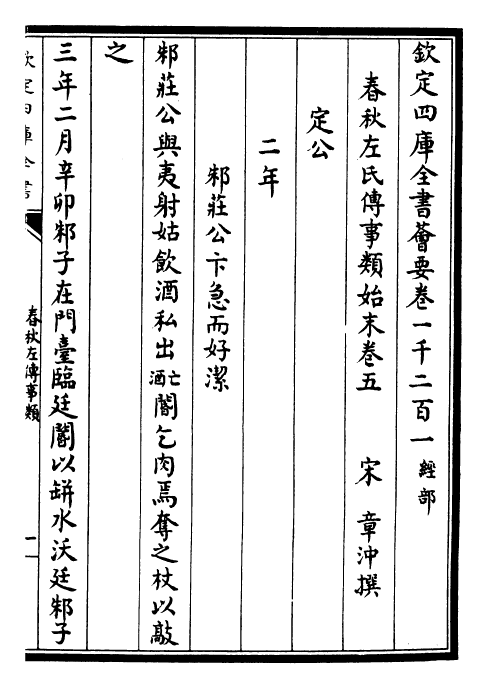 欽定四庫全書薈要卷一千二百一 經部
春秋左氏傳事類始末卷五 宋 章沖撰
定公
二年
邾莊公卞急而好潔
邾莊公與夷射姑飲酒私出亡酒閽乞肉焉奪之杖以敲
之
三年二月辛卯邾子在門臺臨廷閽以缾水沃廷邾子
欽定四庫全書
春秋左傳事類
一